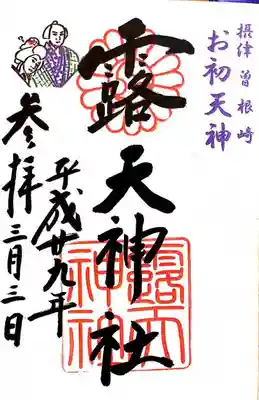 摂津 曽根崎
お初天神
露天神社
平成廿九年
三月三日
参拝
露天
神社